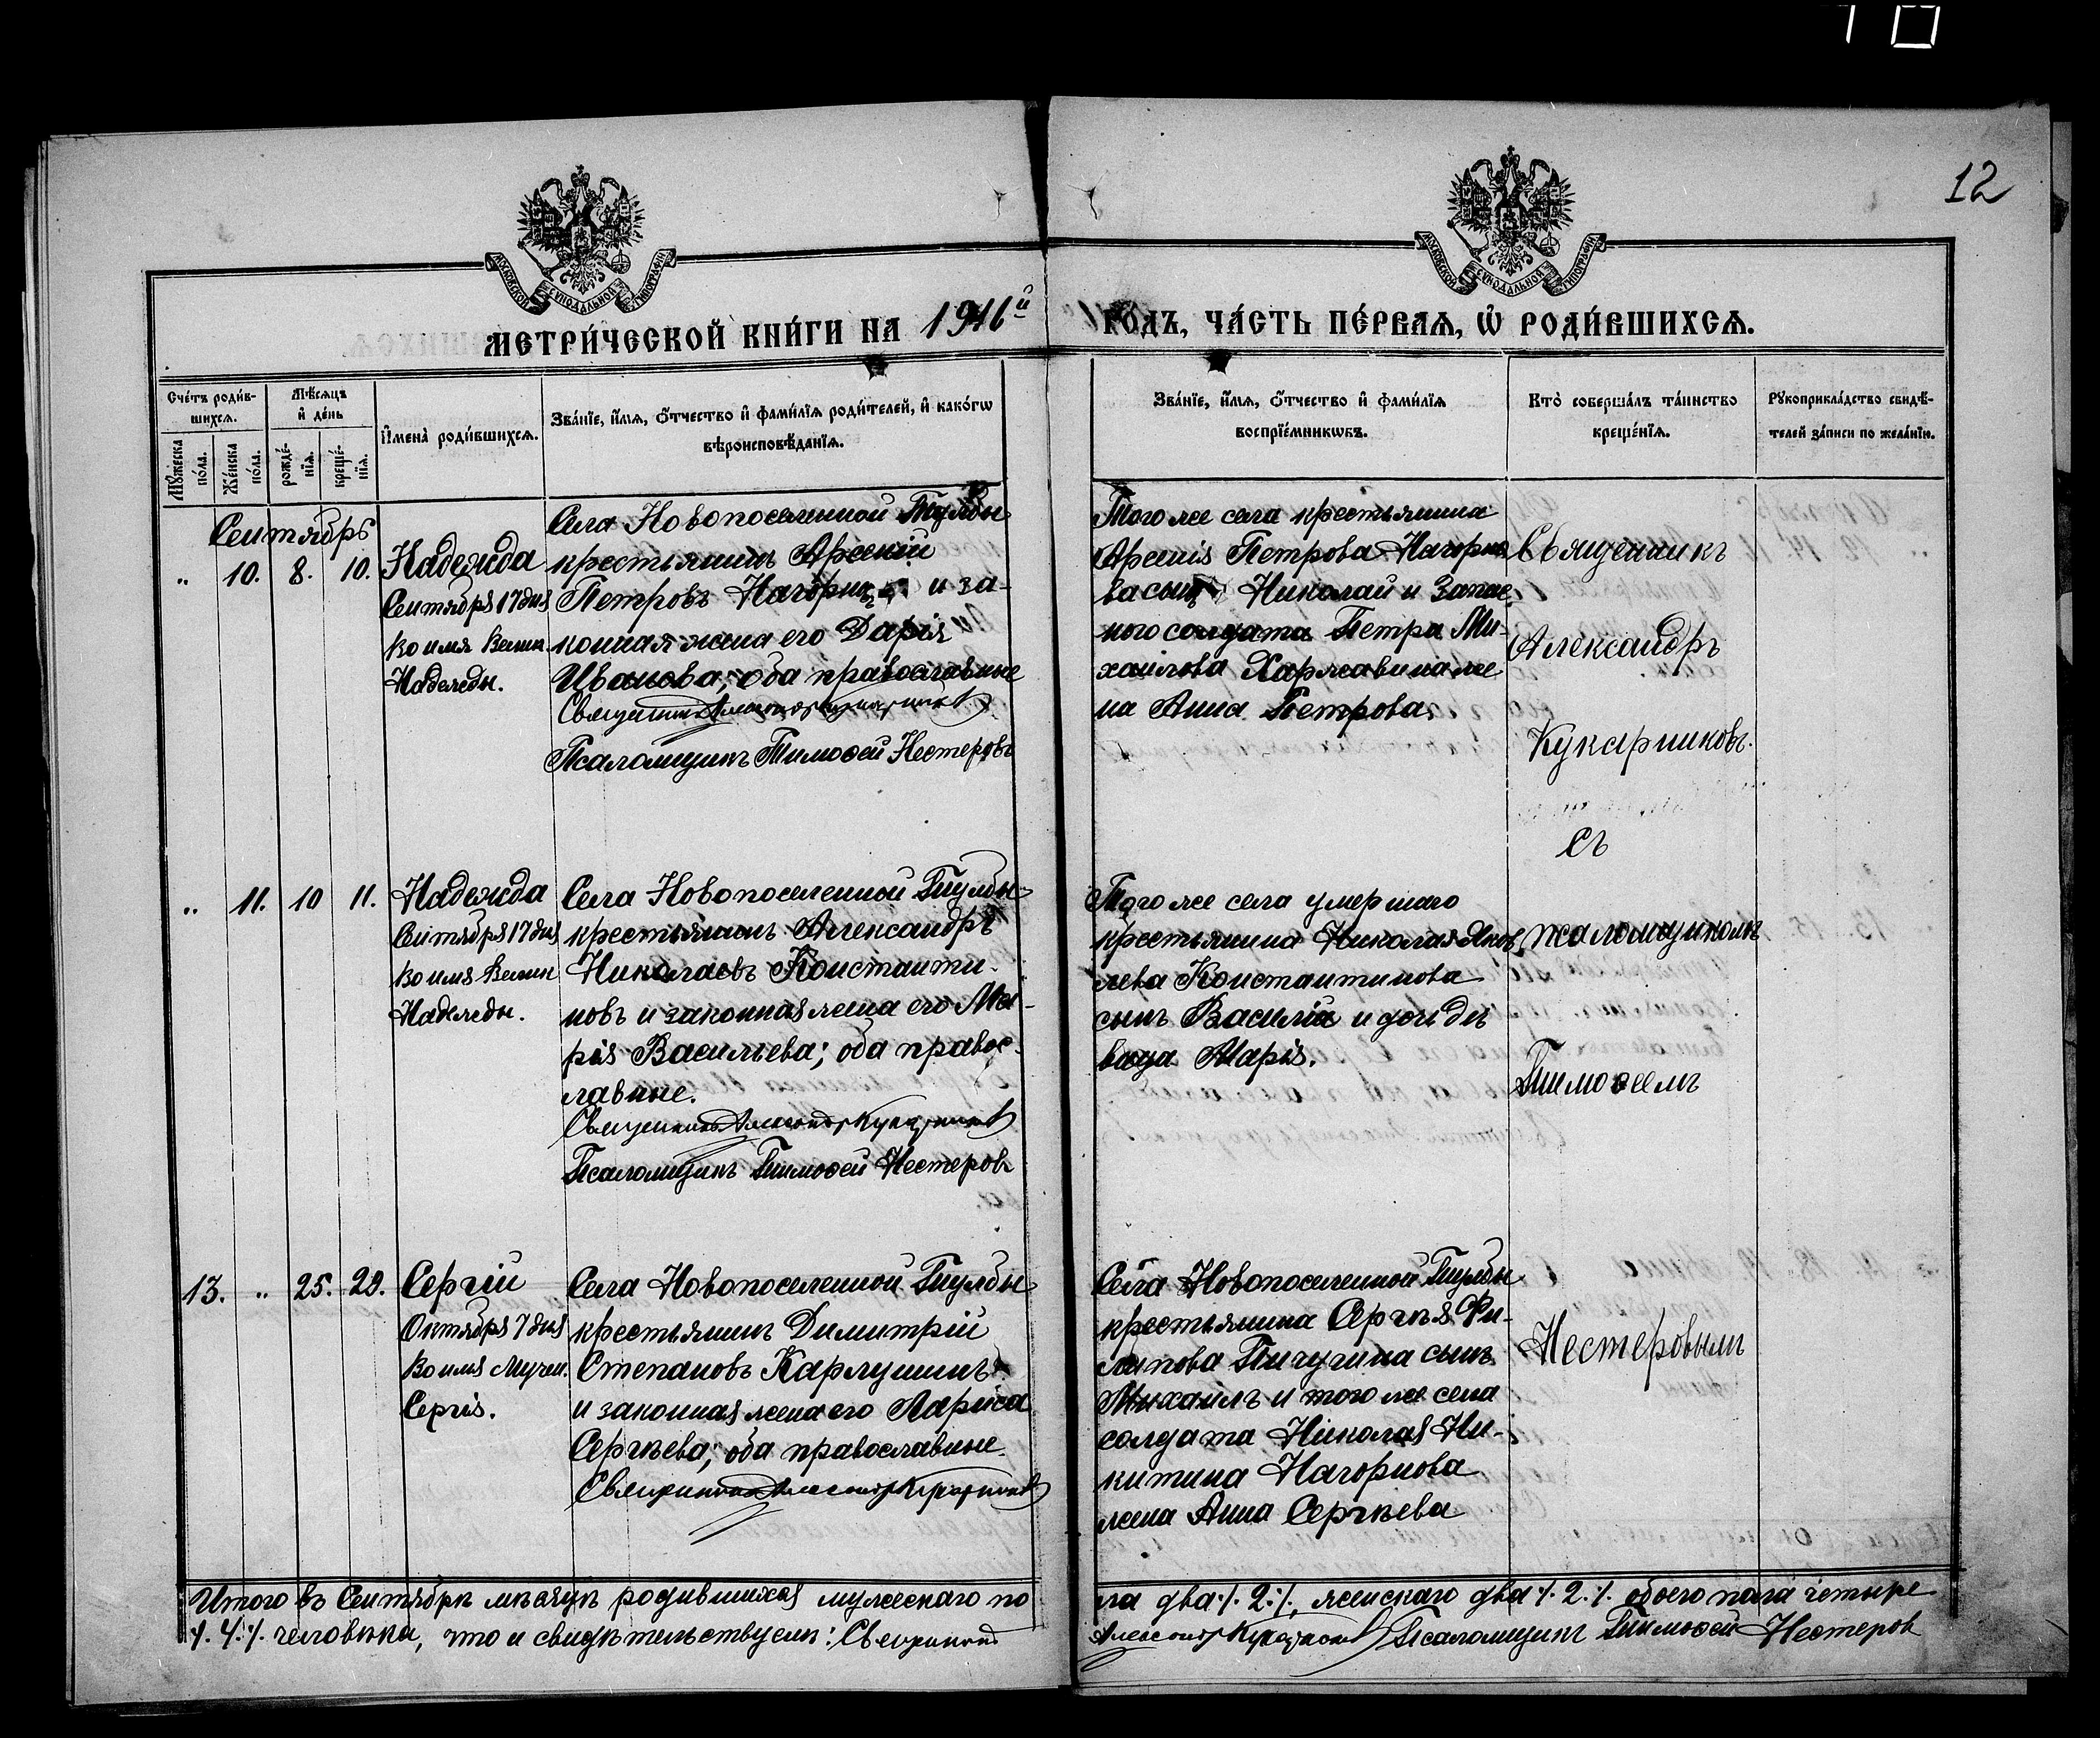 12
МОСКОВСКОЙ СѴНОДАЛЬНОЙ ТИПОГРАФІИ
МОСКОВСКОЙ СѴНОДАЛЬНОЙ ТИПОГРАФІИ
МЕТРИ́ЧЕСКОЙ КНИ́ГИ НА 1916й ГО́ДЪ, ЧА́СТЬ ПЕ́РВАѦ, Ѡ҆ РОДИ́ВШИХСѦ.
Сче́тъ роди́в-
шихсѧ.
Мѣ́сѧцъ
и҆ де́нь
Мꙋ́жеска
по́ла.
Же́нска
по́ла.
рожде́-
нїѧ.
креще́-
нїѧ.
И҆мена̀ роди́вшихсѧ.
Зва́нїе, и҆́мѧ, ѻ҆́тчество и҆ фами́лїѧ роди́телей, и҆ како́гѡ
вѣроисповѣ́данїѧ.
Зва́нїе, и҆́мѧ, ѻ҆́тчество и҆ фами́лїѧ
воспрїе́мникѡвъ.
Кто̀ соверша́лъ та́инство
креще́нїѧ.
Рꙋкоприкла́дство свидѣ́-
телей за́писи по жела́нїю.
Сентябрь
„ 10. 8. 10.
Надежда
Сентября 17 дня
во имя Велик.
Надежды.
Села Новопоселенной Тулбы
крестьянинъ Арсеній
Петровъ Нагорн и за-
конная жена его Дарія
Иванова; оба православные
Священникъ Александръ Кукарниковъ
Псаломщикъ Тимоѳей Нестеровъ
Того же села крестьянина
Арсенія Петрова Нагорно
ва сынъ Николай и Запас
ного солдата Петра Ми-
хаилова Харжавина же
на Анна Петрова.
Священникъ
Александръ
Кукарниковъ.
съ
„ 11. 10 11.
Надежда
Сентября 17 дня
во имя Велик
Надежды.
Села Новопоселенной Тулбы
крестьянинъ Александръ
Николаевъ Константи-
новъ и законная жена его Ма-
рія Васильева; оба правос-
лавные.
Священникъ Александръ Кукарниковъ
Псаломщикъ Тимоѳей Нестеровъ
Того же села умершаго
крестьянина Николая Яков
лева Константинова
сынъ Василій и дочь дѣ
вица Марія.
псаломщикомъ
Тимоѳеемъ
13. „ 25. 29.
Сергій
Октября 7 дня
во имя Мучен.
Сергія.
Села Новопоселенной Тулбы
крестьянинъ Димитрій
Степановъ Карлушинъ
и законная жена его Лариса
Сергѣева; оба православные.
Священникъ Александръ Кукарниковъ
Села Новопоселенной Тулбы
крестьянина Сергѣя Фи-
липова Пичугина сынъ
Михаилъ и того же села
солдата Николая Ни-
китина Нагорнова
жена Анна Сергѣева
Нестеровымъ
Итого въ Сентябрѣ мѣсяцѣ родившихся мужескаго по
ла два ·/. 2 ·/., женскаго два ·/. 2 ·/. обоего пола четыре
·/. 4 ·/. человѣка, что и свидѣтельствуемъ: Священникъ
Александръ Кукарниковъ Псаломщикъ Тимоѳей Нестеровъ